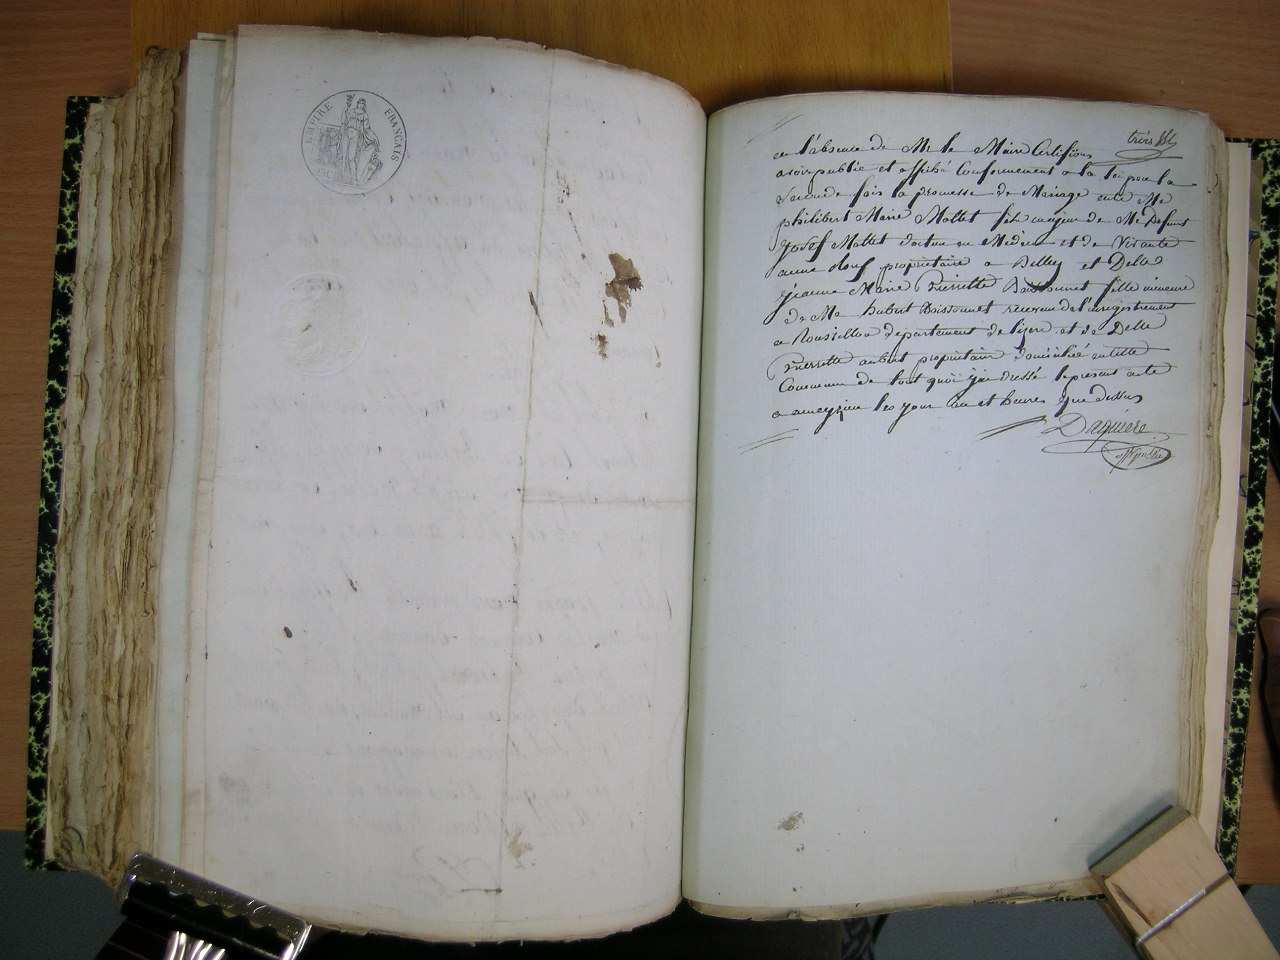 EMPIRE FRANÇAIS
en l'absence de Mr le Maire Certifions
avoir publié et affiché Conformement a la loi pour la
Seconde fois la promesse de Mariage entre Mr
philibert Marie Mollet fils majeur de Mr Defunt
Josef Mollet docteur en Médecine et de Vivante
anne propriétaire a Belley et Delle
jeanne Marie Pierrette Boissonnet fille mineure
de Mr hubert Boissonnet receveur de l'enregistrement
a Roussillon departement de l'izere et de Delle
Pierrette aubert propriétaire domiciliée en cette
Commune de tout quoi j'ai dressé le present acte
a les jour an et heures que dessus
Draguiere